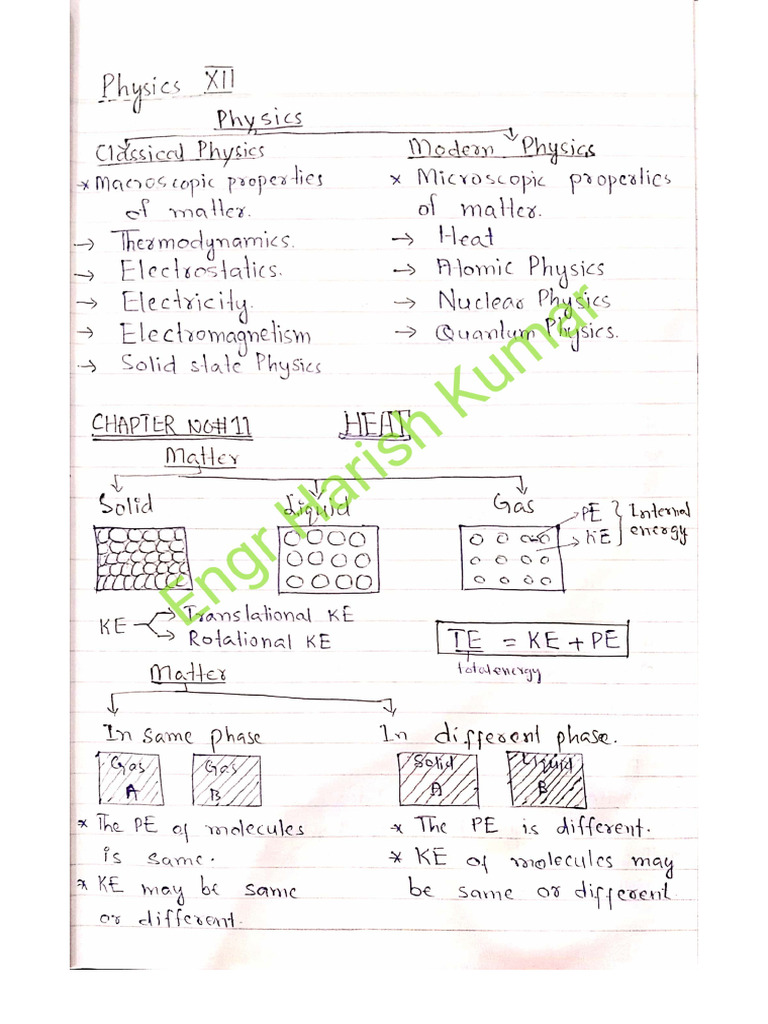 Physics XII
Physics
Classical Physics
* Macroscopic properties
of matter.
→ Thermodynamics.
→ Electrostatics.
→ Electricity.
→ Electromagnetism
→ Solid state Physics
Modern Physics
* Microscopic properties
of matter.
→ Heat
→ Atomic Physics
→ Nuclear Physics
→ Quantum Physics.
CHAPTER NO# 11 HEAT
Matter
Solid Liquid Gas
PE } Internal
KE energy
KE → Translational KE
→ Rotational KE
TE = KE + PE
total energy
Matter
In same phase
Gas Gas
A B
* The PE of molecules
is same.
* KE may be same
or different.
In different phase.
Solid Liquid
A B
* The PE is different.
* KE of molecules may
be same or different
Engr Harish Kumar